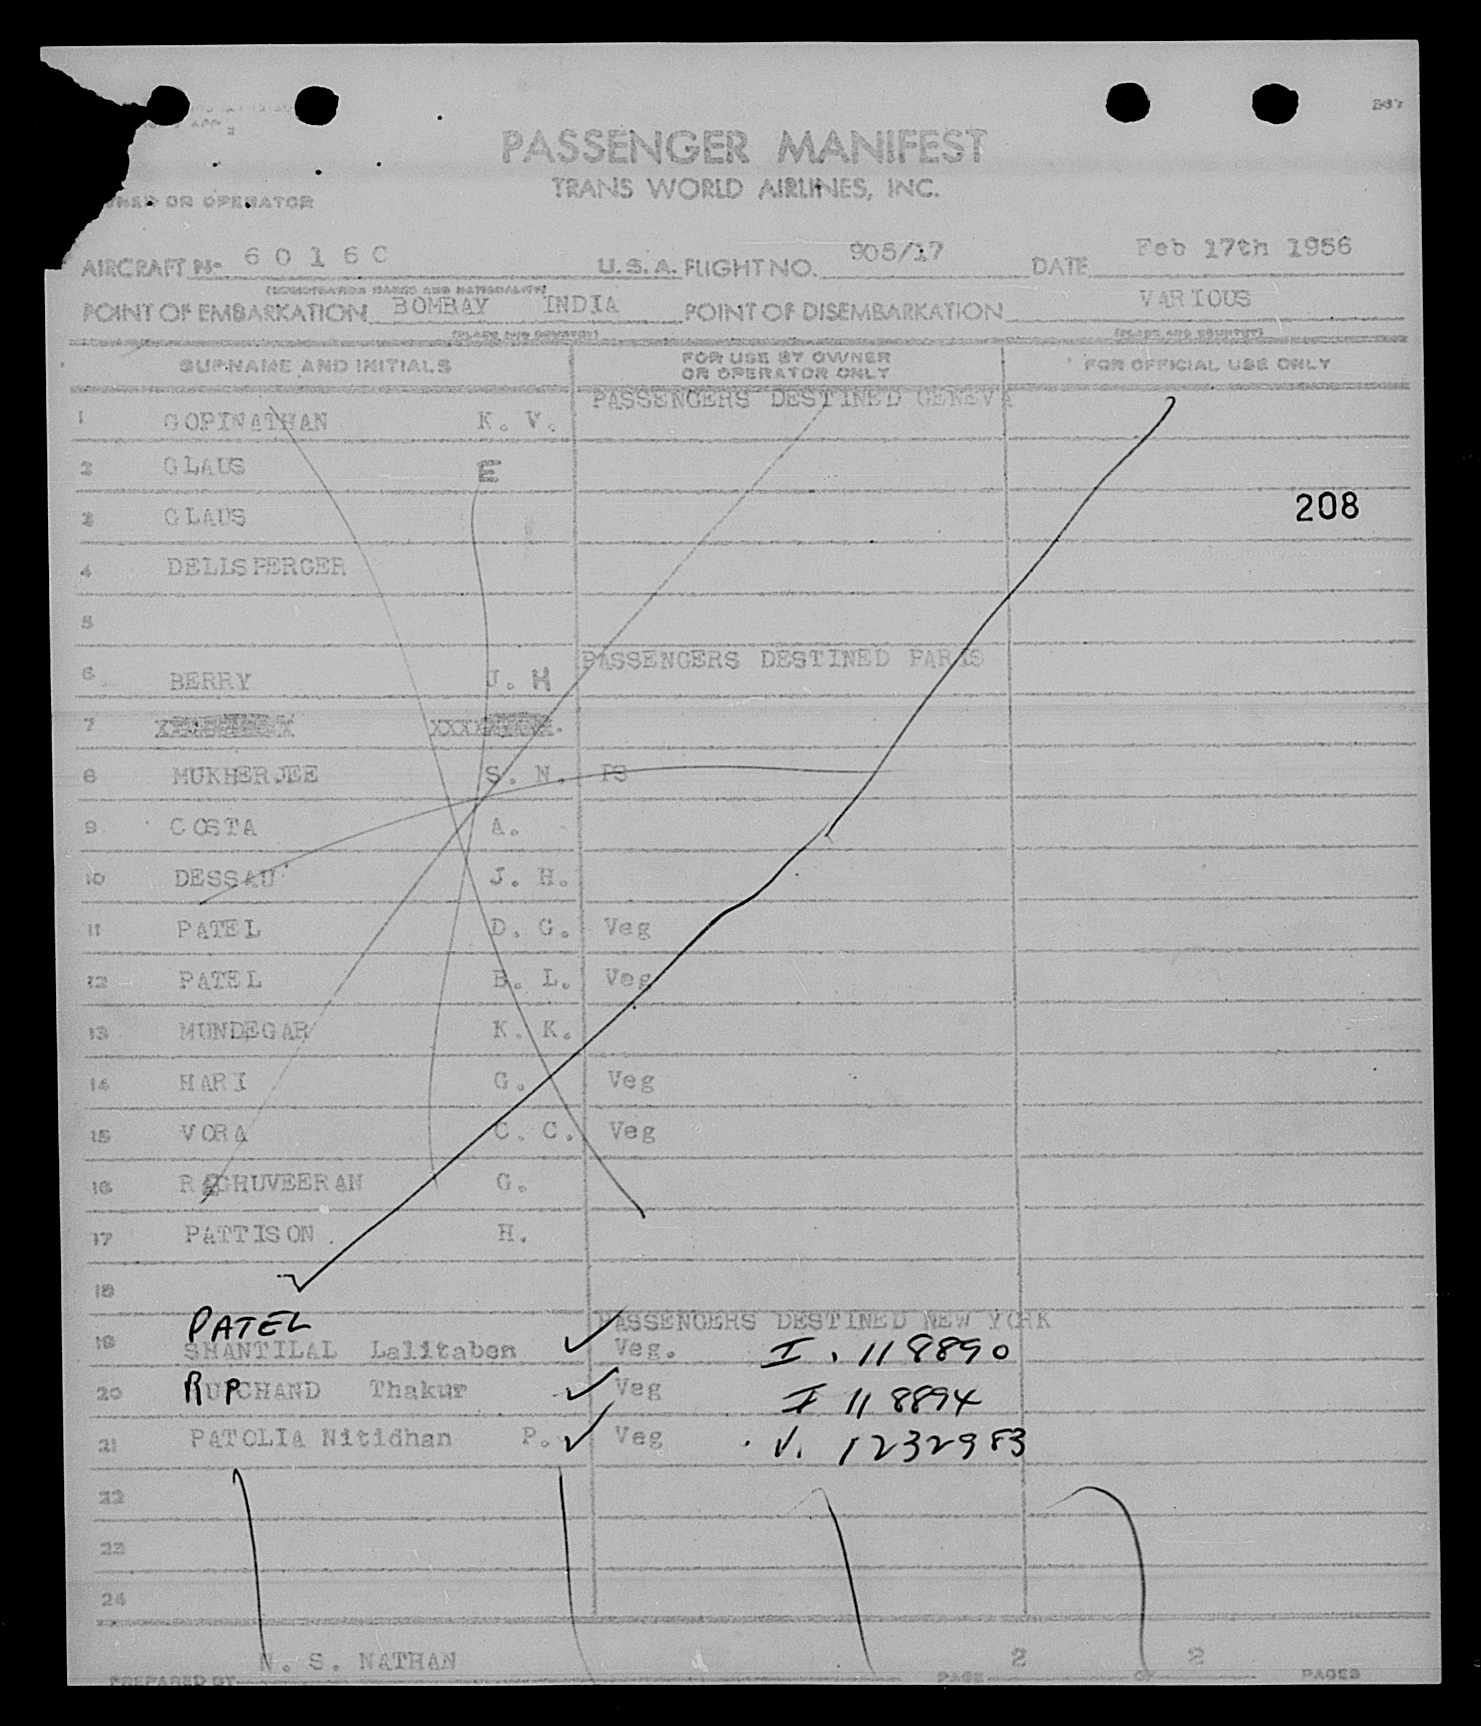 PASSENGER MANIFEST
TRANS WORLD AIRLINES, INC.
OR OPERATOR
AIRCRAFT No. 60160 U.S.A. FLIGHT NO. 905/17 DATE Feb 17th 1956
(REGISTRATION MARKS AND NATIONALITY)
POINT OF EMBARKATION BOMBAY INDIA POINT OF DISEMBARKATION VARIOUS
(PLACE AND COUNTRY) (PLACE AND COUNTRY)
SURNAME AND INITIALS FOR USE BY OWNER OR OPERATOR ONLY FOR OFFICIAL USE ONLY
PASSENGERS DESTINED GENEVA
1 GOPINATHAN K. V.
2 GLAUS E
208
3 GLAUS
4 DELLSPERGER
5
PASSENGERS DESTINED PARIS
6 BERRY J. H
7
8 MUKHERJEE S. N. PS
9 COSTA A.
10 DESSAU J. H.
11 PATEL D. G. Veg
12 PATEL B. L. Veg
13 MUNDEGAR K. K.
14 HARI G. Veg
15 VORA C. C. Veg
16 RAGHUVEERAN G.
17 PATTISON H.
18
PATEL PASSENGERS DESTINED NEW YORK
19 SHANTILAL Lalitaben ✓ Veg. I. 118890
20 RUPCHAND Thakur ✓ Veg I 118894
21 PATOLIA Nitidhan P. ✓ Veg V. 1232983
22
23
24
PREPARED BY N. S. NATHAN PAGE 2 OF 2 PAGES